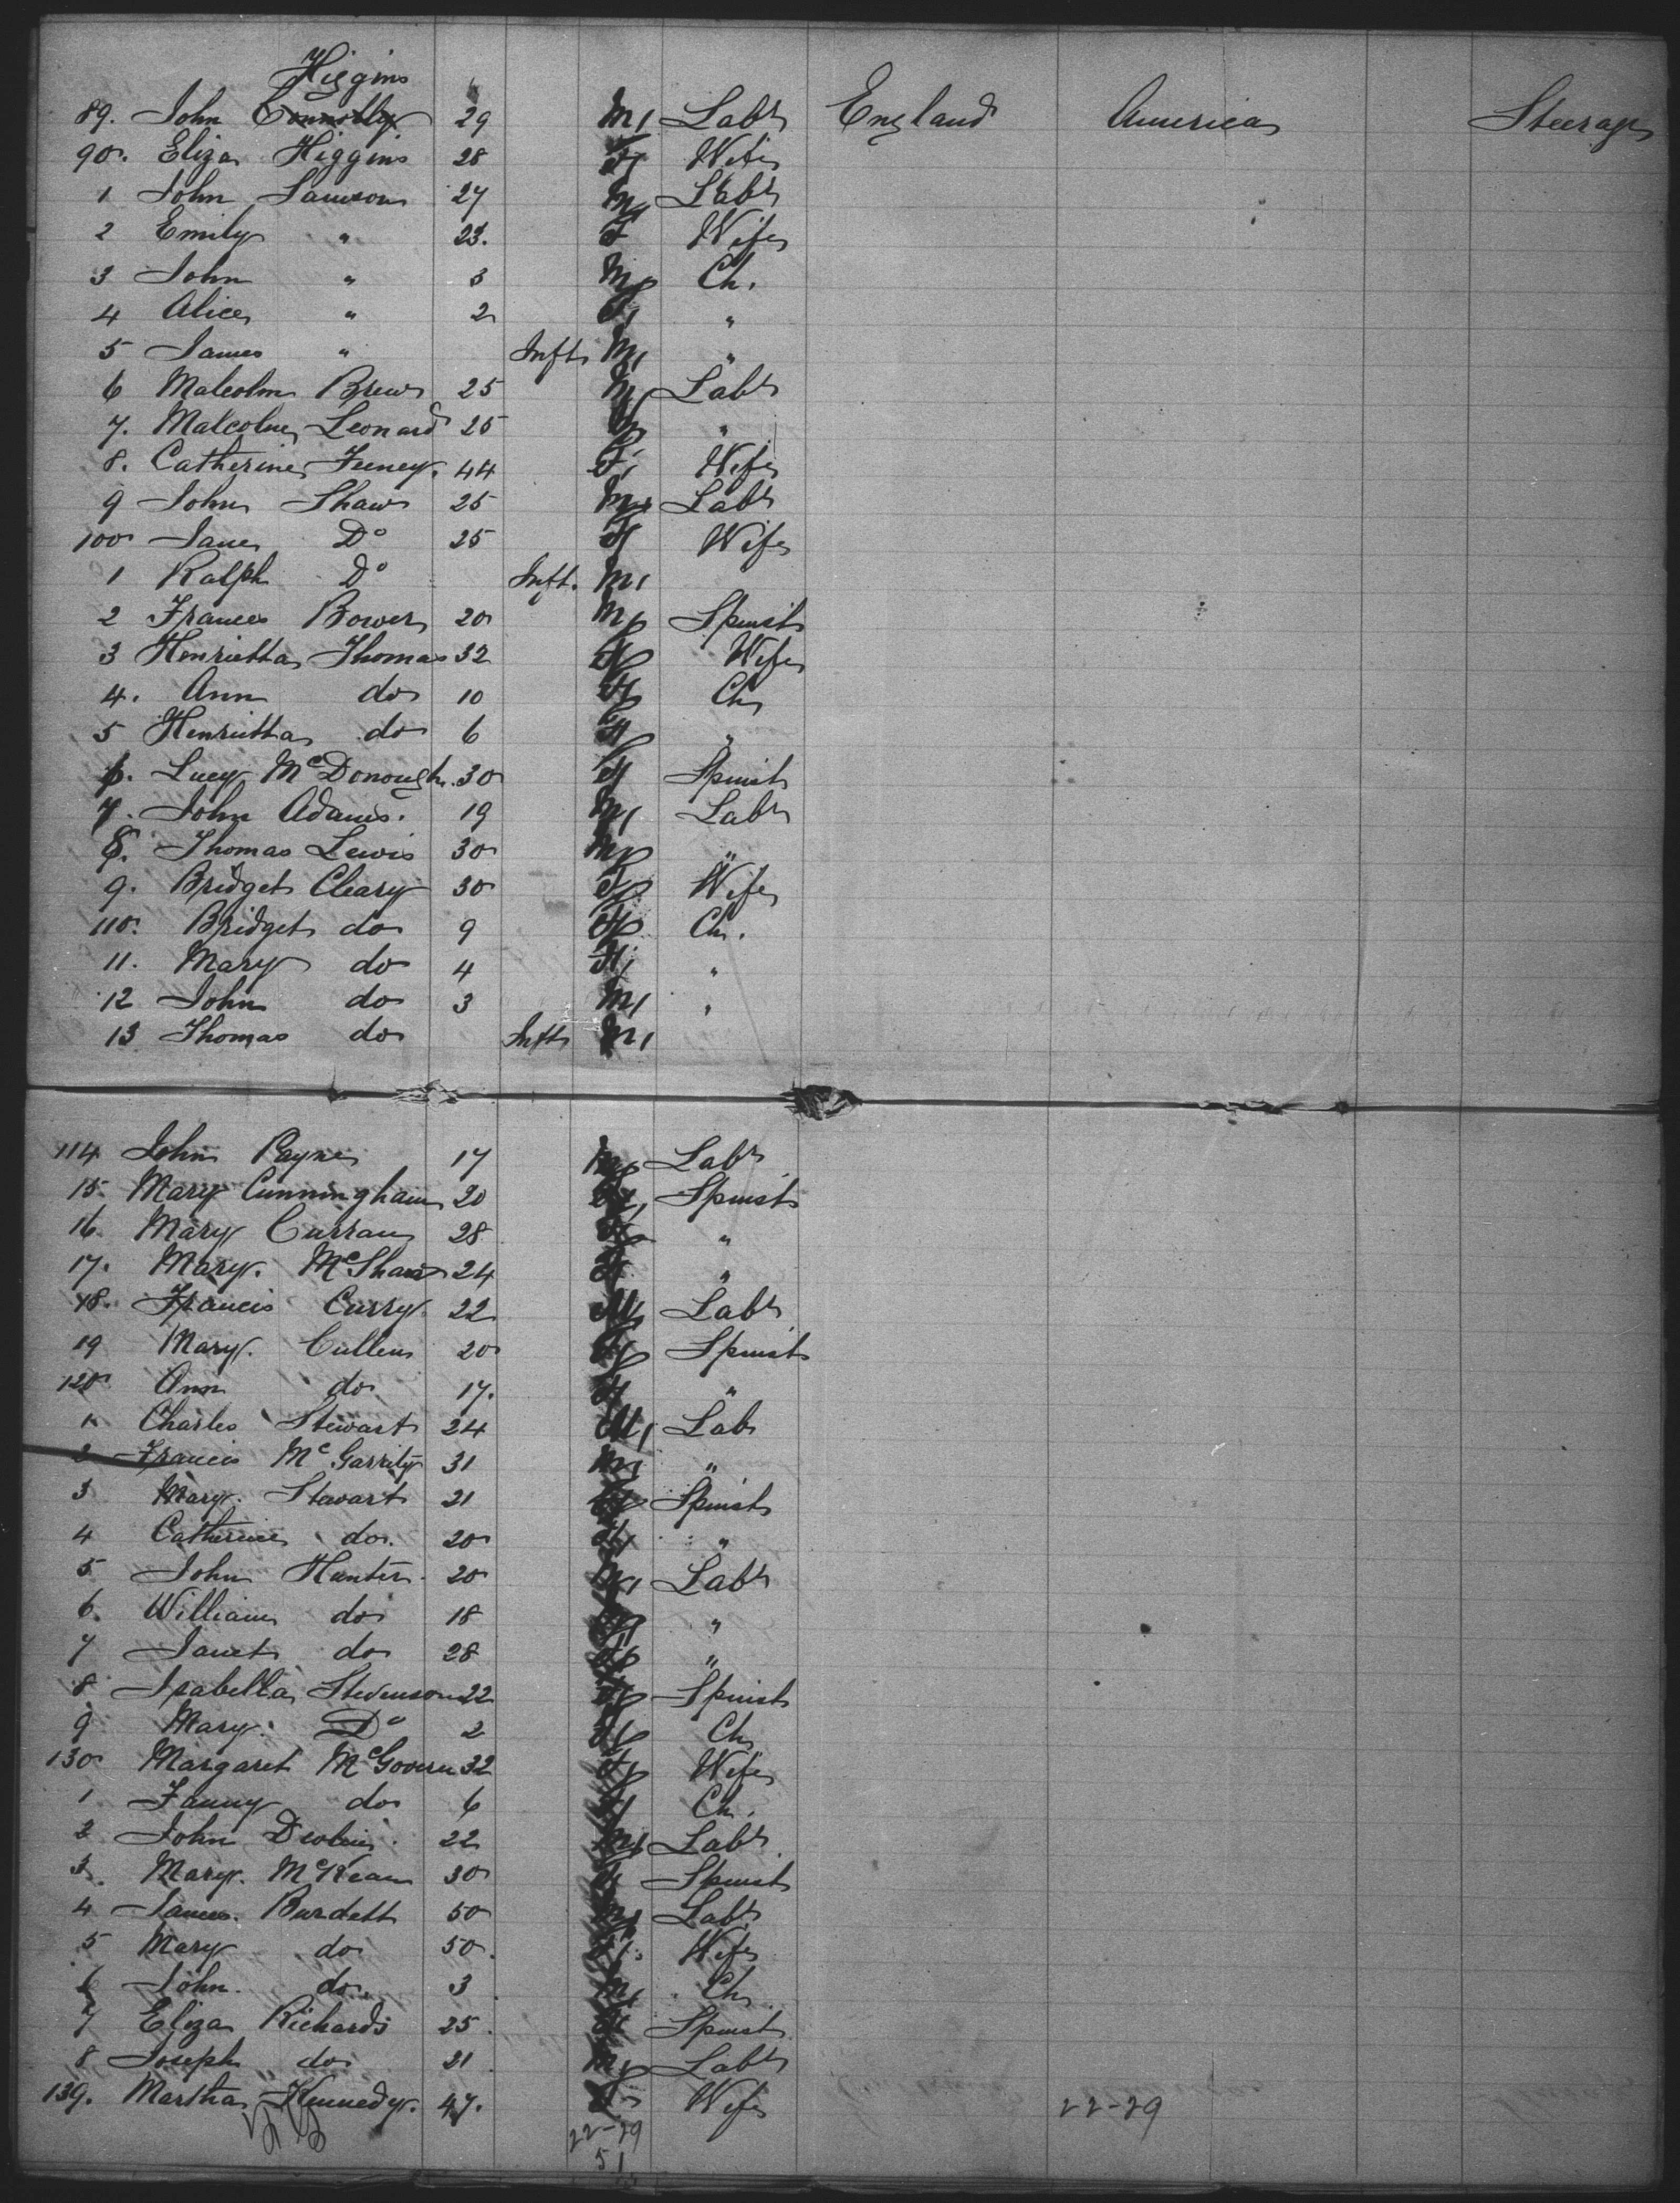 Higgins
89. John Connolly 29 M Labr England America Steerage
90. Eliza Higgins 28 F Wife
1 John Lawson 27 M Labr
2 Emily " 23. F Wife
3 John " 3 M Ch.
4 Alice " 2 F "
5 James " Inft M "
6 Malcolm Brew 25 M Labr
7. Malcolm Leonard 25 M "
8. Catherine Feeney. 44 F Wife
9 John Shaw 25 M Labr
100 Jane Do 25 F Wife
1 Ralph Do Inft. M
2 Frances Bower 20 M Spinst
3 Henrietta Thomas 32 F Wife
4. Ann do 10 F Ch
5 Henrietta do 6 F "
6. Lucy McDonough. 30 F Spinst
7. John Adams. 19 M Labr
8. Thomas Lewis 30 M "
9. Bridget Cleary 30 F Wife
110. Bridget do 9 F Ch.
11. Mary do 4 F "
12 John do 3 M "
13 Thomas do Inft M
114 John Payne 17 M Labr
15. Mary Cunningham 20 F Spinst
16. Mary Curran 28 F "
17. Mary. McShane 24 F "
18. Francis Curry. 22 M Labr
19 Mary. Cullen 20 F Spinst
120 Ann do 17. F "
1. Charles Stewart 24 M Lab
2 Francis McGarrity 31 M "
3 Mary. Stewart 21 F Spinst
4 Catherine do. 20 F "
5 John Hunter. 20 M Labr
6. William do 18 M "
7 Janet do 28 F "
8 Isabella Stevenson 22 F Spinst
9 Mary. Do 2 F Ch
130 Margaret McGovern 32 F Wife
1 Fanny do 6 F Ch.
2 John Devlin. 22 M Labr
3. Mary. McKean 30 F Spinst
4 James. Burdett 50 M Labr
5 Mary do 50. F Wife
6 John. do. 3 M Ch
7 Eliza Richards 25. F Spinst
8 Joseph do 21 M Labr
139. Martha Kennedy. 47. F Wife
22-29 22-29
51